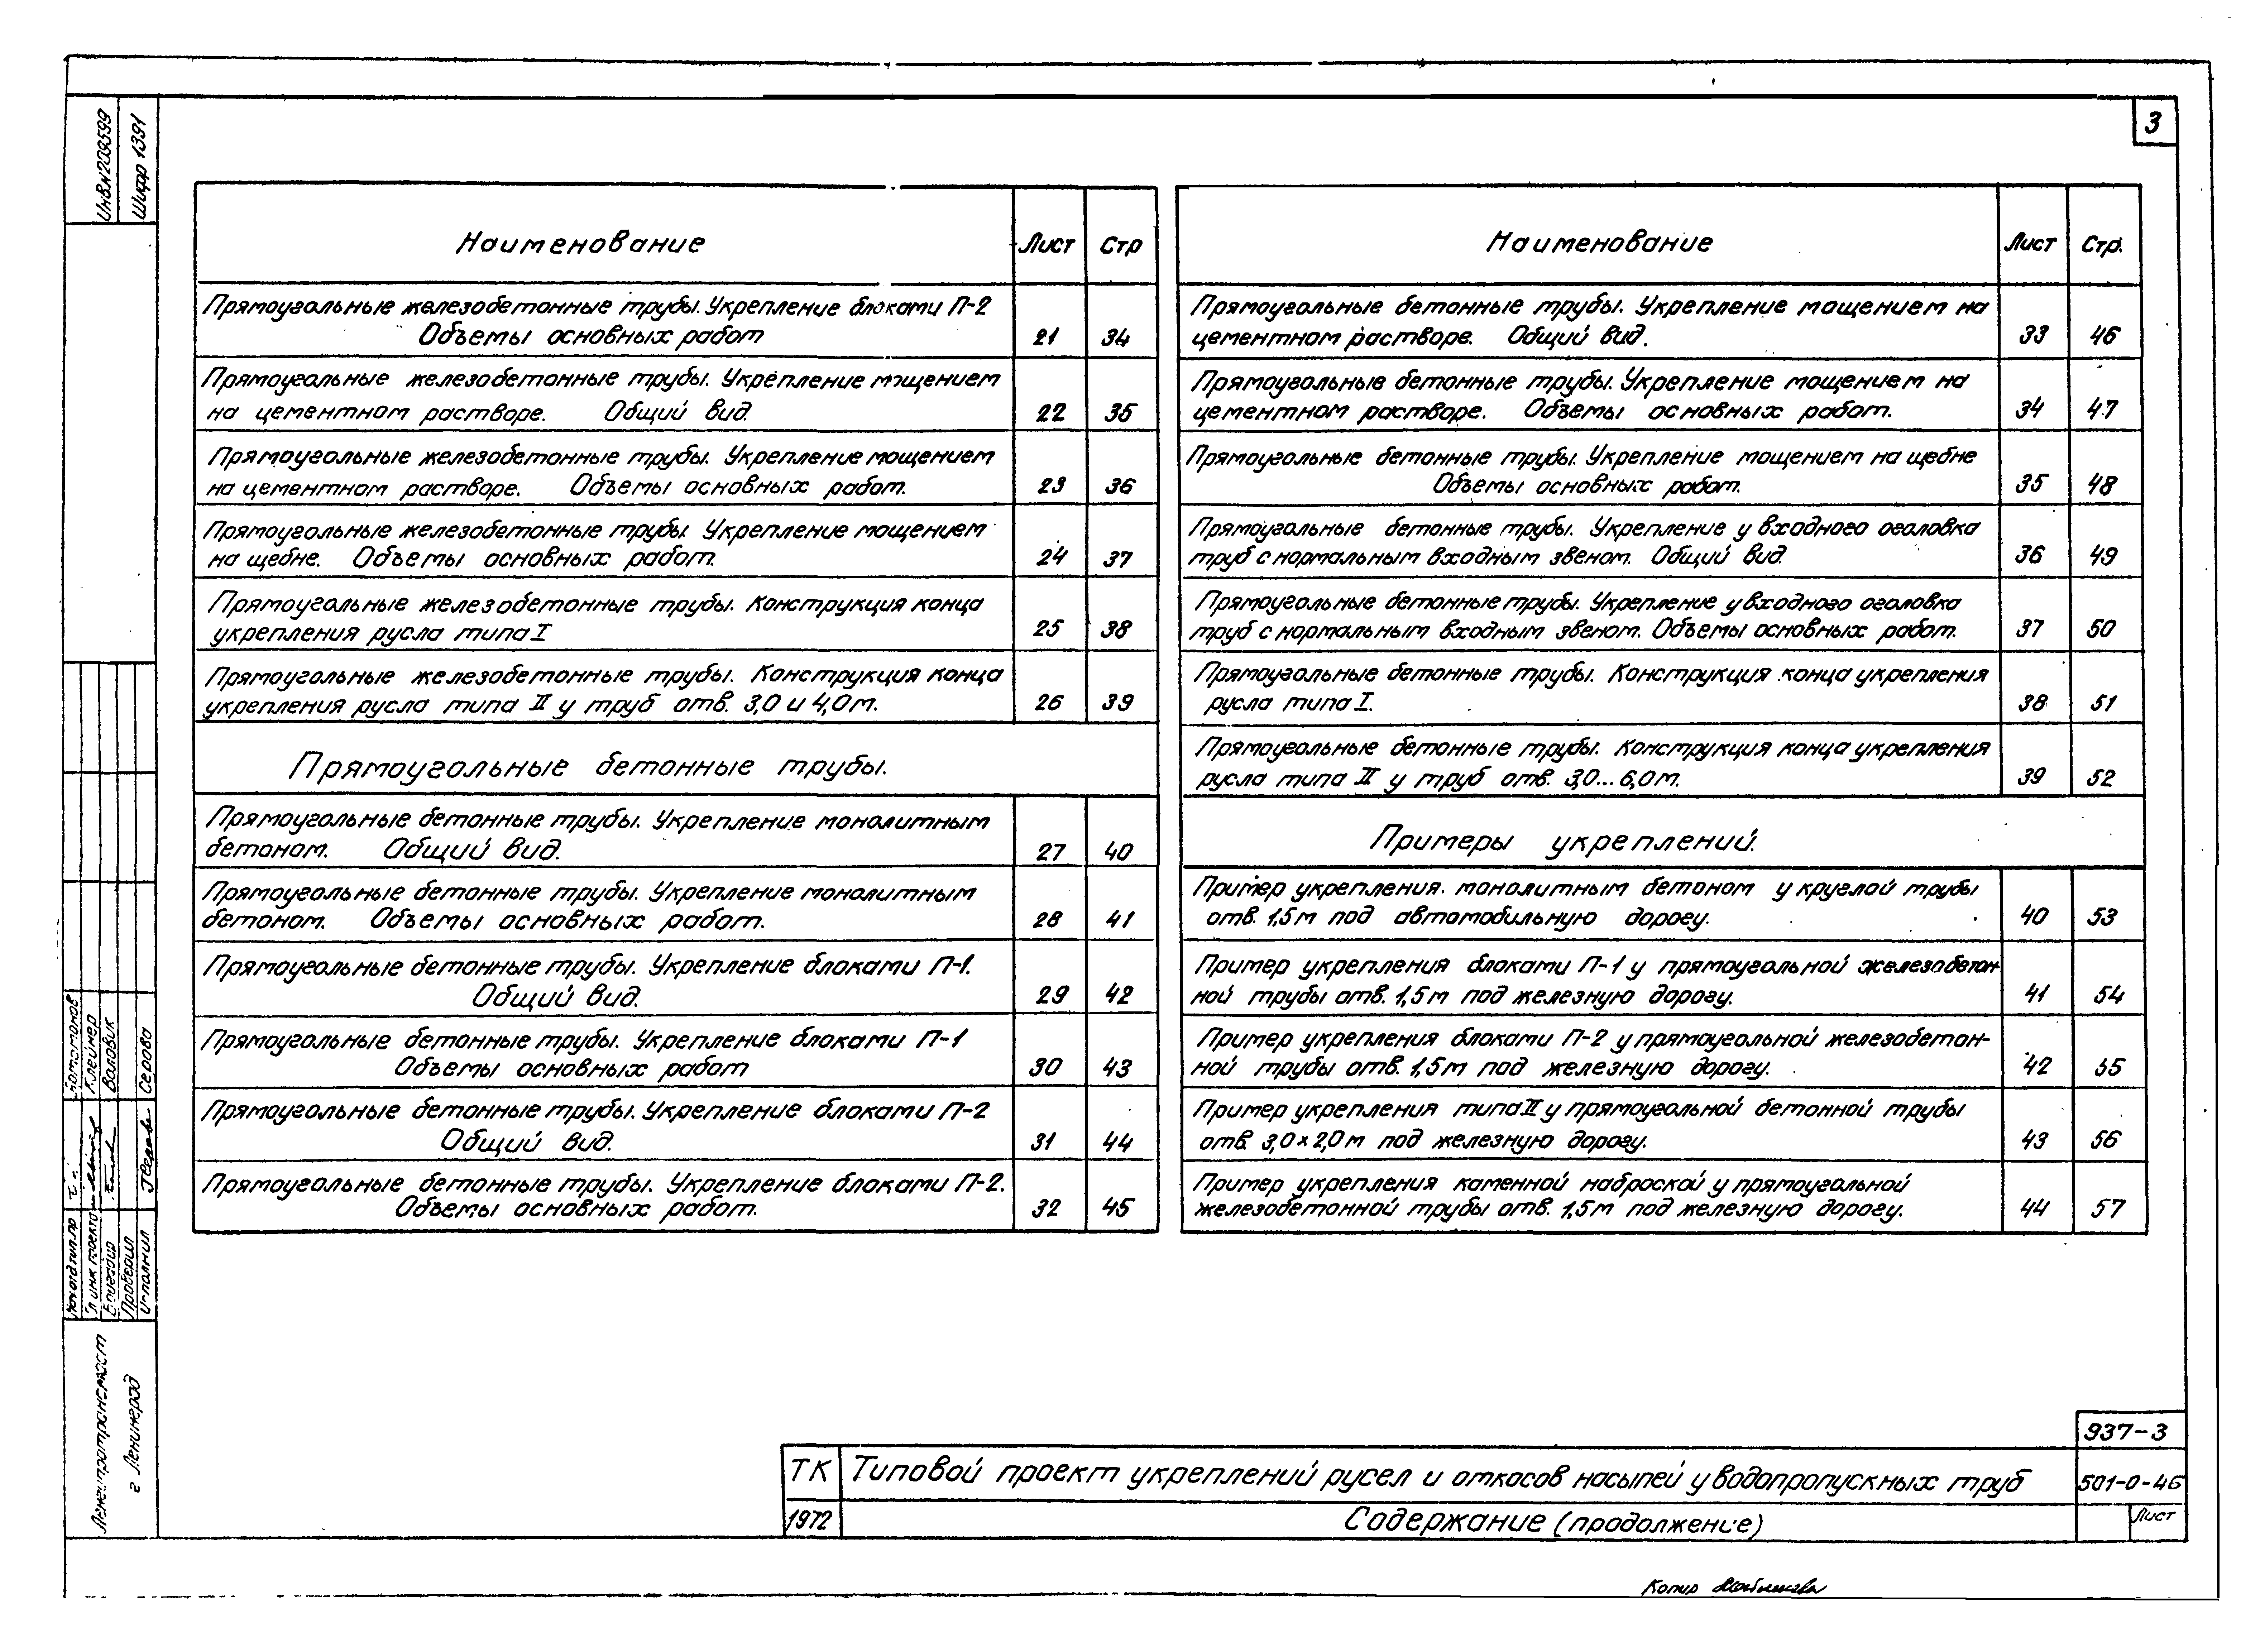 3
Инв.№209599
Шифр 1391
Наименование Лист Стр
Прямоугольные железобетонные трубы. Укрепление блоками П-2
Объемы основных работ 21 34
Прямоугольные железобетонные трубы. Укрепление мощением
на цементном растворе. Общий вид. 22 35
Прямоугольные железобетонные трубы. Укрепление мощением
на цементном растворе. Объемы основных работ. 23 36
Прямоугольные железобетонные трубы. Укрепление мощением
на щебне. Объемы основных работ. 24 37
Прямоугольные железобетонные трубы. Конструкция конца
укрепления русла типа I 25 38
Прямоугольные железобетонные трубы. Конструкция конца
укрепления русла типа II у труб отв. 3,0 и 4,0м. 26 39
Прямоугольные бетонные трубы.
Прямоугольные бетонные трубы. Укрепление монолитным
бетоном. Общий вид. 27 40
Прямоугольные бетонные трубы. Укрепление монолитным
бетоном. Объемы основных работ. 28 41
Прямоугольные бетонные трубы. Укрепление блоками П-1.
Общий вид. 29 42
Прямоугольные бетонные трубы. Укрепление блоками П-1
Объемы основных работ 30 43
Прямоугольные бетонные трубы. Укрепление блоками П-2
Общий вид. 31 44
Прямоугольные бетонные трубы. Укрепление блоками П-2.
Объемы основных работ. 32 45
Наименование Лист Стр.
Прямоугольные бетонные трубы. Укрепление мощением на
цементном растворе. Общий вид. 33 46
Прямоугольные бетонные трубы. Укрепление мощением на
цементном растворе. Объемы основных работ. 34 47
Прямоугольные бетонные трубы. Укрепление мощением на щебне
Объемы основных работ. 35 48
Прямоугольные бетонные трубы. Укрепление у входного оголовка
труб с нормальным входным звеном. Общий вид. 36 49
Прямоугольные бетонные трубы. Укрепление у входного оголовка
труб с нормальным входным звеном. Объемы основных работ. 37 50
Прямоугольные бетонные трубы. Конструкция конца укрепления
русла типа I. 38 51
Прямоугольные бетонные трубы. Конструкция конца укрепления
русла типа II у труб отв. 3,0...6,0м. 39 52
Примеры укреплений.
Пример укрепления монолитным бетоном у круглой трубы
отв. 1,5м под автомобильную дорогу. 40 53
Пример укрепления блоками П-1 у прямоугольной железобетон-
ной трубы отв. 1,5м под железную дорогу. 41 54
Пример укрепления блоками П-2 у прямоугольной железобетон-
ной трубы отв. 1,5м под железную дорогу. 42 55
Пример укрепления типа II у прямоугольной бетонной трубы
отв. 3,0×2,0м под железную дорогу. 43 56
Пример укрепления каменной наброской у прямоугольной
железобетонной трубы отв. 1,5м под железную дорогу. 44 57
Клейнер
Валовик
Серова
Проверил
Ленгипротрансмост
г Ленинград
937-3
ТК Типовой проект укреплений русел и откосов насыпей у водопропускных труб 501-0-46
1972 Содержание (продолжение) Лист
Копир